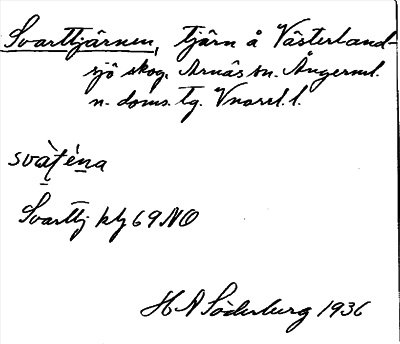 Svarttjärnen, tjärn å Västerland-
sjö skog. Arnäs sn. Ångerml.
n. doms. tg. Vnorrl. l.
svàt́éna
Svarttj ktj 69 NO
H A Söderberg 1936